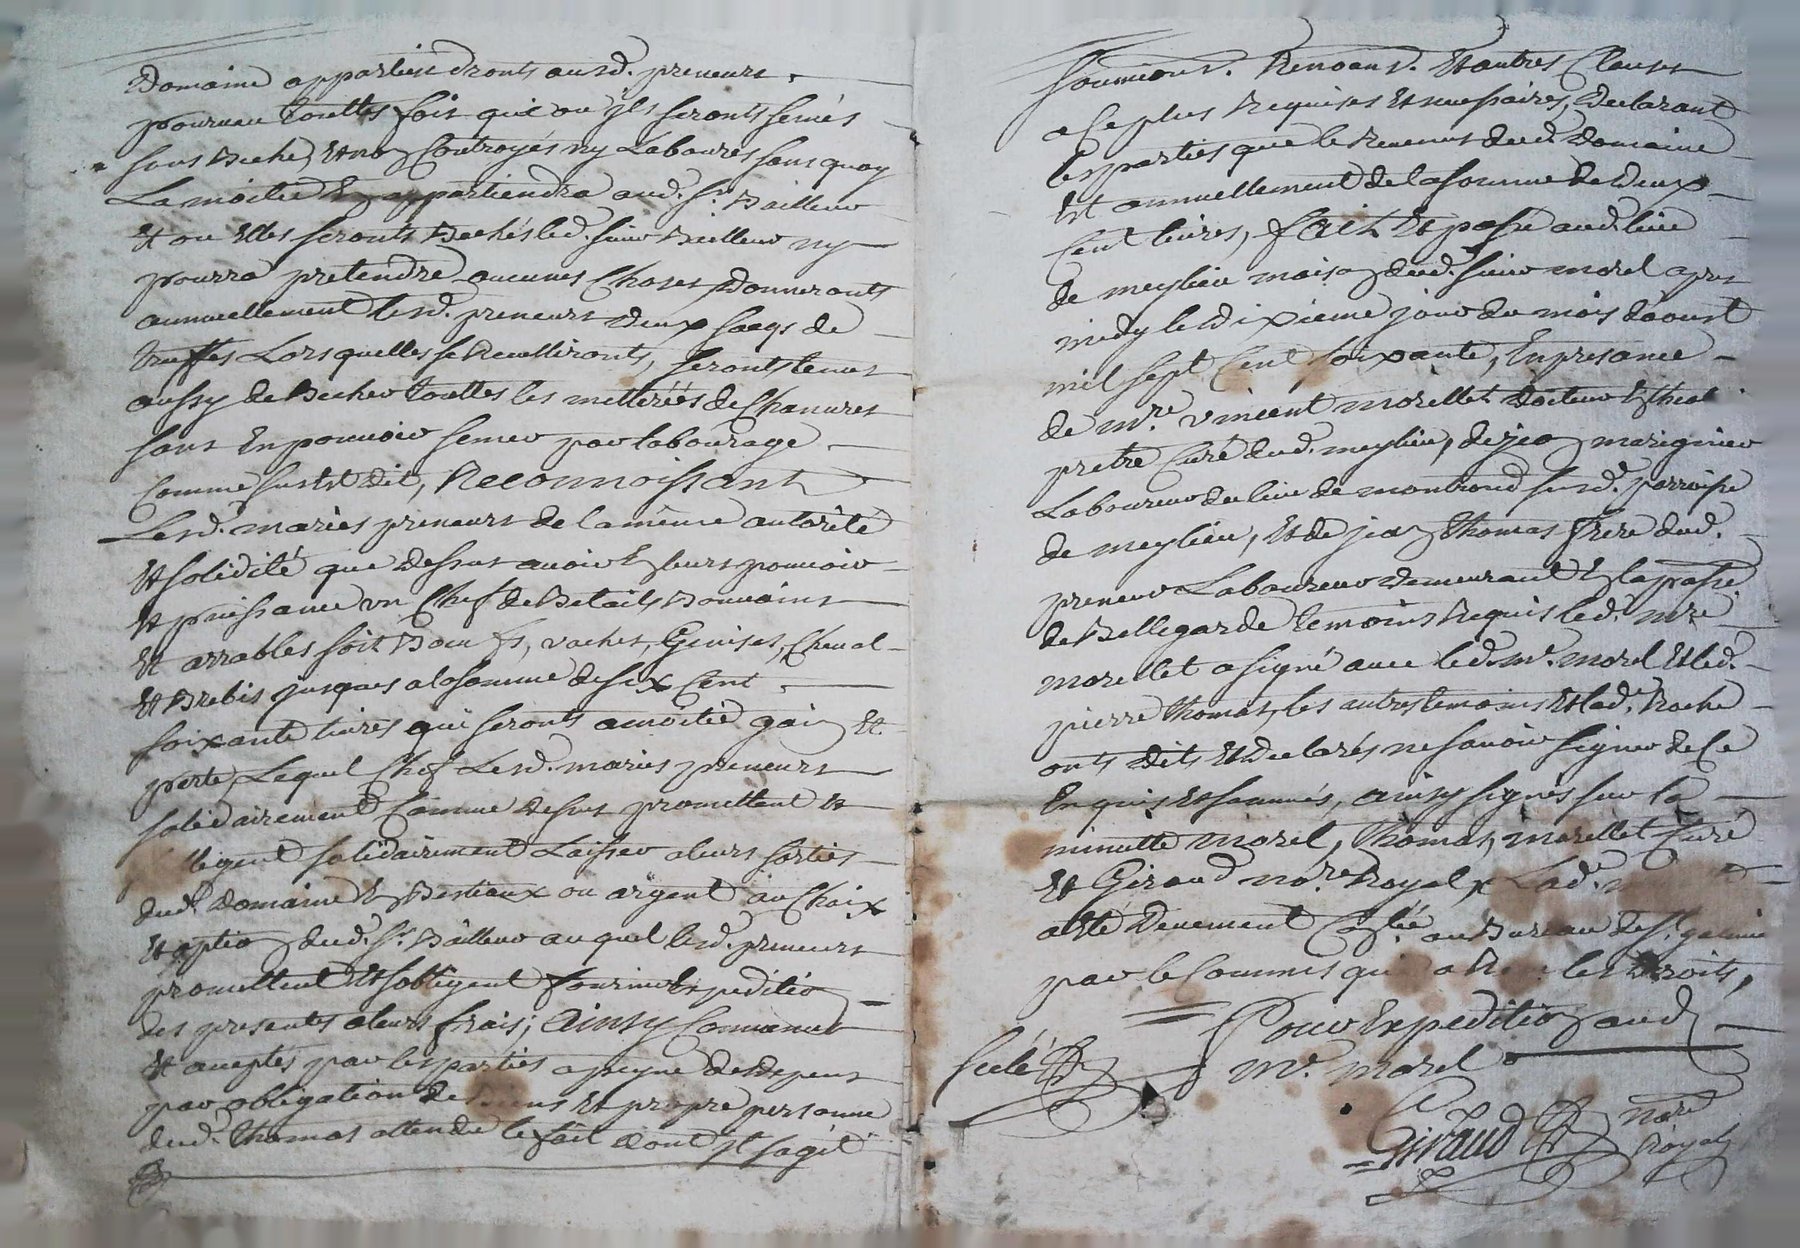 Domaine appartiendronts ausd. preneurs.
pourveu touttes fois que ou jls seronts semés
sous Beche, et non Controyés ny Labourés sans quoy
La moitié En appartiendra aud. Sr. Bailleur
Et ou Elles seronts Bechés led. sieur Bailleur ny
pourra pretendre aucunes Choses, Donneronts
annuellement lesd. preneurs deux sacqs de
truffes Lors quelles se Receullironts, seronts tenus
aussy de Becher touttes les metterées de Chanvres
sans En pouvoir semer par labourage
Comme sus Est dit, Reconnoissant
Lesd. mariés preneurs de la même autorité
Et solidité que dessus avoir En leurs pouvoir
Et puissance un Chef de Betails Bouvains
Et arrables soit Boeufs, vaches, Genises, Cheval
Et Brebis jusques a la somme de six Cent
soixante livres qui seronts a moitié gain Et
perte, Lequel Chef Lesd. mariés preneurs
solidairement Comme dessus promettent Et
sobligent solidairement Laisser a leurs sorties
dud. Domaine En Bestiaux ou argent au Choix
Et option dud. Sr. Bailleur auquel lesd. preneurs
promettent Et sobligent fournir Expedition
des presentes a leurs frais; Ainsy Convenus
Et aceptés par les parties a peyne de depens
par obligation de Biens Et propre personne
dud. Thomas attendu le fait dont jl sagit
soumions. Renoans. Et autres Clauses
a Ce plus Requises Et necessaires, Declarant
les parties que le Revenus dud. Domaine
Est annuellement de la somme de deux
Cent livres, fait Et passé aud. lieu
de meylieu maison dud. sieur morel apres
midy le dixieme jour du mois daoust
mil sept Cent soixante, En presance
de Mre. vincent morellet docteur En theol.
pretre Curé dud. meylieu, de jean marignier
Laboureur du lieu de montrond susd. parroisse
de meylieu, Et de jean Thomas frere dud.
preneur Laboureur demeurant En la passe.
de Bellegarde temoins Requis led. Mre
morellet a signé avec led. Mr. morel Et led.
pierre Thomas, les autres temoins Et lad. Roche
onts dits Et declarés ne savoir signer de Ce
Enquis Et sommés, ainsy signés sur la
minutte morel, Thomas, morellet Curé
Et Giraud nore. Royal, Lad.
a Eté Deuement Controllée au Bureau de St. galmier
par le Commis qui a les Droits,
Pour Expedition aud.
Scelé
Mr. morel
Giraud nore
Royal